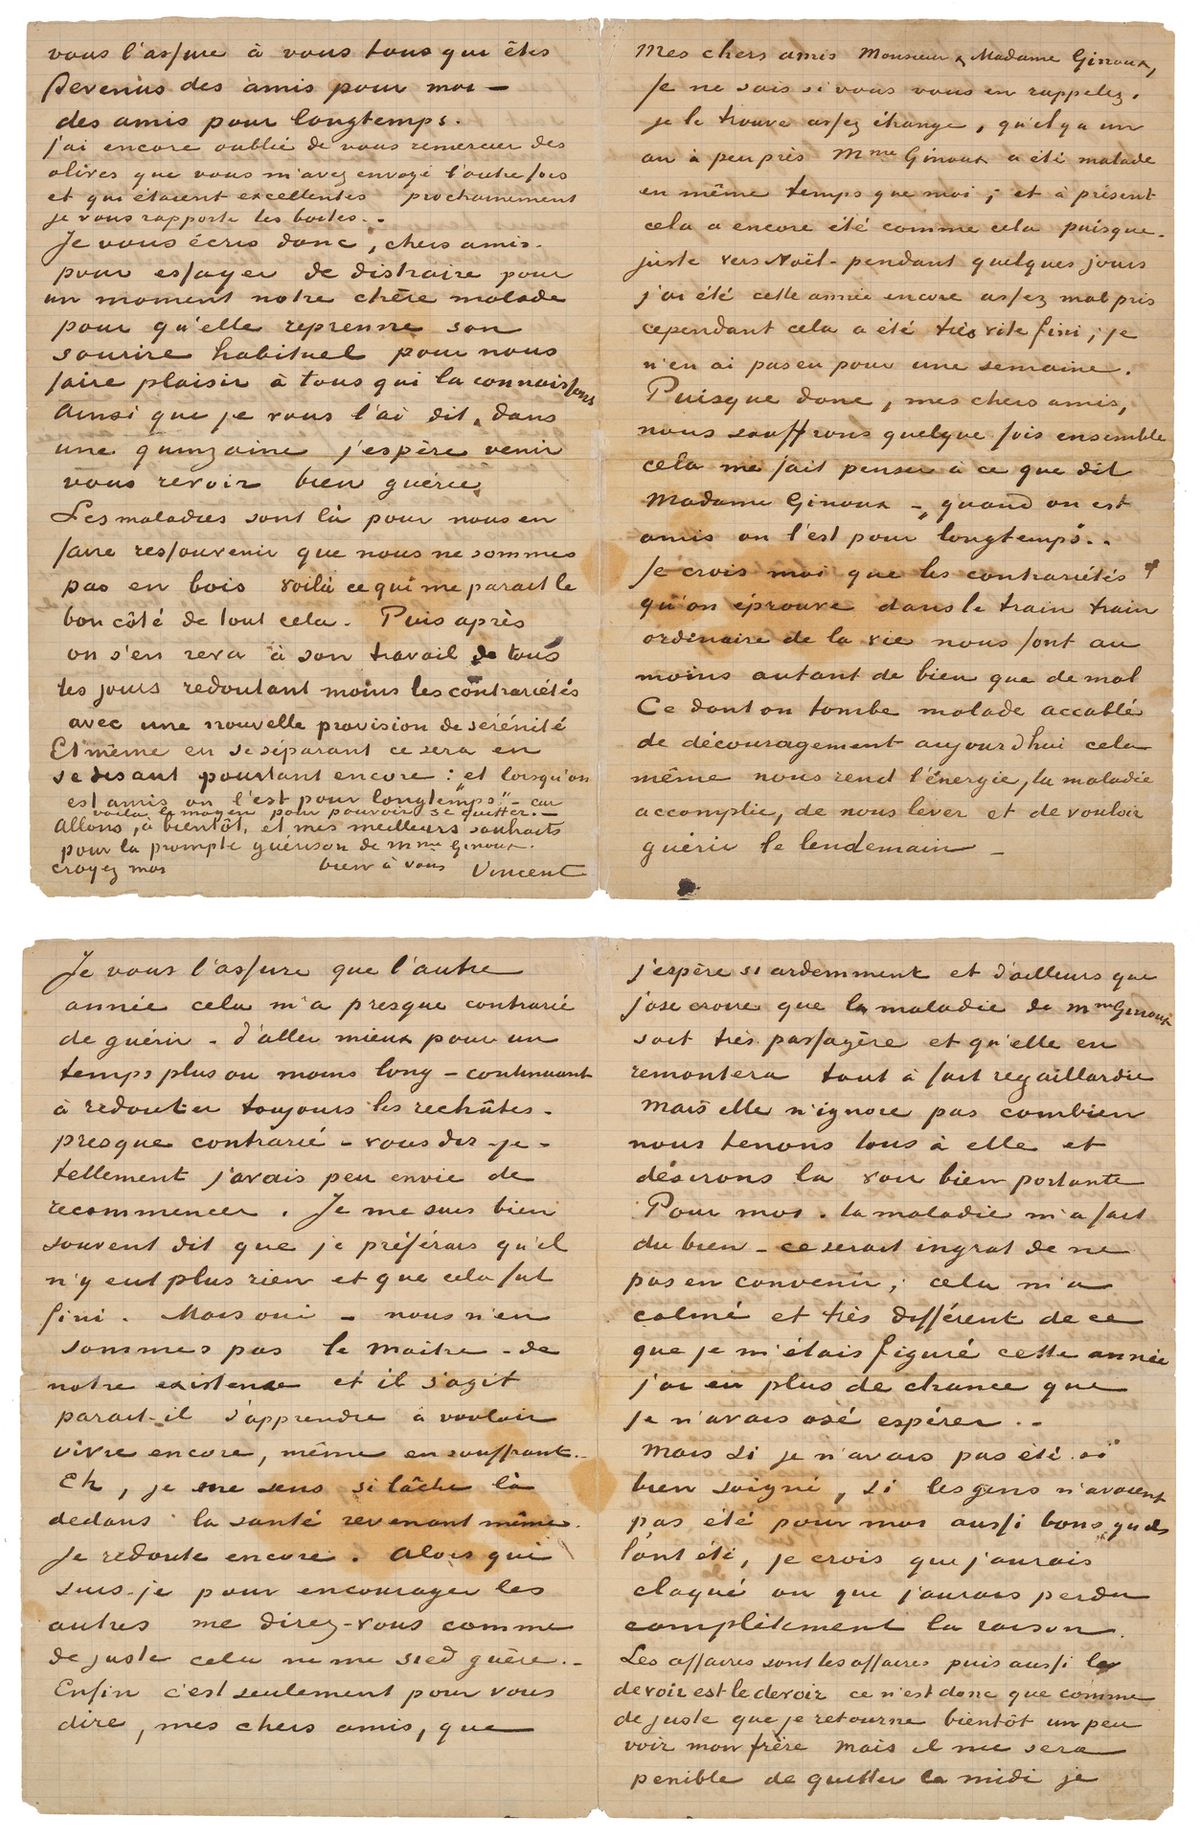 Mes chers amis Monsieur & Madame Ginoux,
Je ne sais si vous vous en rappelez.
je le trouve assez étrange, qu'il y a un
an à peu près Mme Ginoux a été malade
en même temps que moi; et à présent
cela a encore été comme cela puisque.
juste vers Noël - pendant quelques jours
j'ai été cette année encore assez mal pris
cependant cela a été très vite fini; je
n'en ai pas eu pour une semaine.
Puisque donc, mes chers amis,
nous souffrons quelque fois ensemble
cela me fait penser à ce que dit
Madame Ginoux - „quand on est
amis on l'est pour longtemps"..
Je crois moi que les contrariétés
qu'on éprouve dans le train train
ordinaire de la vie nous font au
moins autant de bien que de mal
Ce dont on tombe malade accablé
de découragement aujourd'hui cela
même nous rend l'énergie, la maladie
accomplie, de nous lever et de vouloir
guérir le lendemain -
Je vous l'assure que l'autre
année cela m'a presque contrarié
de guérir - d'aller mieux pour un
temps plus ou moins long - continuant
à redouter toujours les rechûtes -
presque contrarié - vous dis-je -
tellement j'avais peu envie de
recommencer. Je me suis bien
souvent dit que je préférais qu'il
n'y eut plus rien et que cela fut
fini. Mais oui - nous n'en
sommes pas le maitre - de
notre existence et il s'agit
parait-il d'apprendre à vouloir
vivre encore, même en souffrant.
Eh, je me sens si lâche là
dedans la santé revenant même
Je redoute encore. Alors qui
suis-je pour encourager les
autres me direz-vous comme
de juste cela ne me sied guère.-
Enfin c'est seulement pour vous
dire, mes chers amis, que
j'espère si ardemment et d'ailleurs que
j'ose croire que la maladie de Mme Ginoux
soit très passagère et qu'elle en
remontera tout à fait regaillardie
Mais elle n'ignore pas combien
nous tenons tous à elle et
désirons la voir bien portante
Pour moi. la maladie m'a fait
du bien - ce serait ingrat de ne
pas en convenir; cela m'a
calmé et très différent de ce
que je m'étais figuré cette année
j'ai eu plus de chance que
je n'avais osé espérer..
Mais si je n'avais pas été si
bien soigné, si les gens n'avaient
pas été pour moi aussi bons qu'ils
l'ont été, je crois que j'aurais
claqué ou que j'aurais perdu
complètement la raison.
Les affaires sont les affaires puis aussi le
devoir est le devoir ce n'est donc que comme
de juste que je retourne bientôt un peu
voir mon frère mais il me sera
penible de quitter le midi je
vous l'assure à vous tous qui êtes
devenus des amis pour moi -
des amis pour longtemps.
j'ai encore oublié de vous remercier des
olives que vous m'avez envoyé l'autre fois
et qui étaient excellentes prochainement
je vous rapporte les boites..
Je vous écris donc, chers amis.
pour essayer de distraire pour
un moment notre chère malade
pour qu'elle reprenne son
sourire habituel pour nous
faire plaisir à tous qui la connaissons
Ainsi que je vous l'ai dit, dans
une quinzaine j'espère venir
vous revoir bien guérie
Les maladies sont là pour nous en
faire ressouvenir que nous ne sommes
pas en bois voilà ce qui me parait le
bon côté de tout cela. Puis après
on s'en reva à son travail de tous
les jours redoutant moins les contrariétés
avec une nouvelle provision de sérénité
Et même en se séparant ce sera en
se disant pourtant encore: „et lorsqu'on
est amis on l'est pour longtemps" - car
voilà le moyen pour pouvoir se quitter.-
Allons, à bientôt, et mes meilleurs souhaits
pour la prompte guérison de Mme Ginoux.
croyez moi bien à vous Vincent